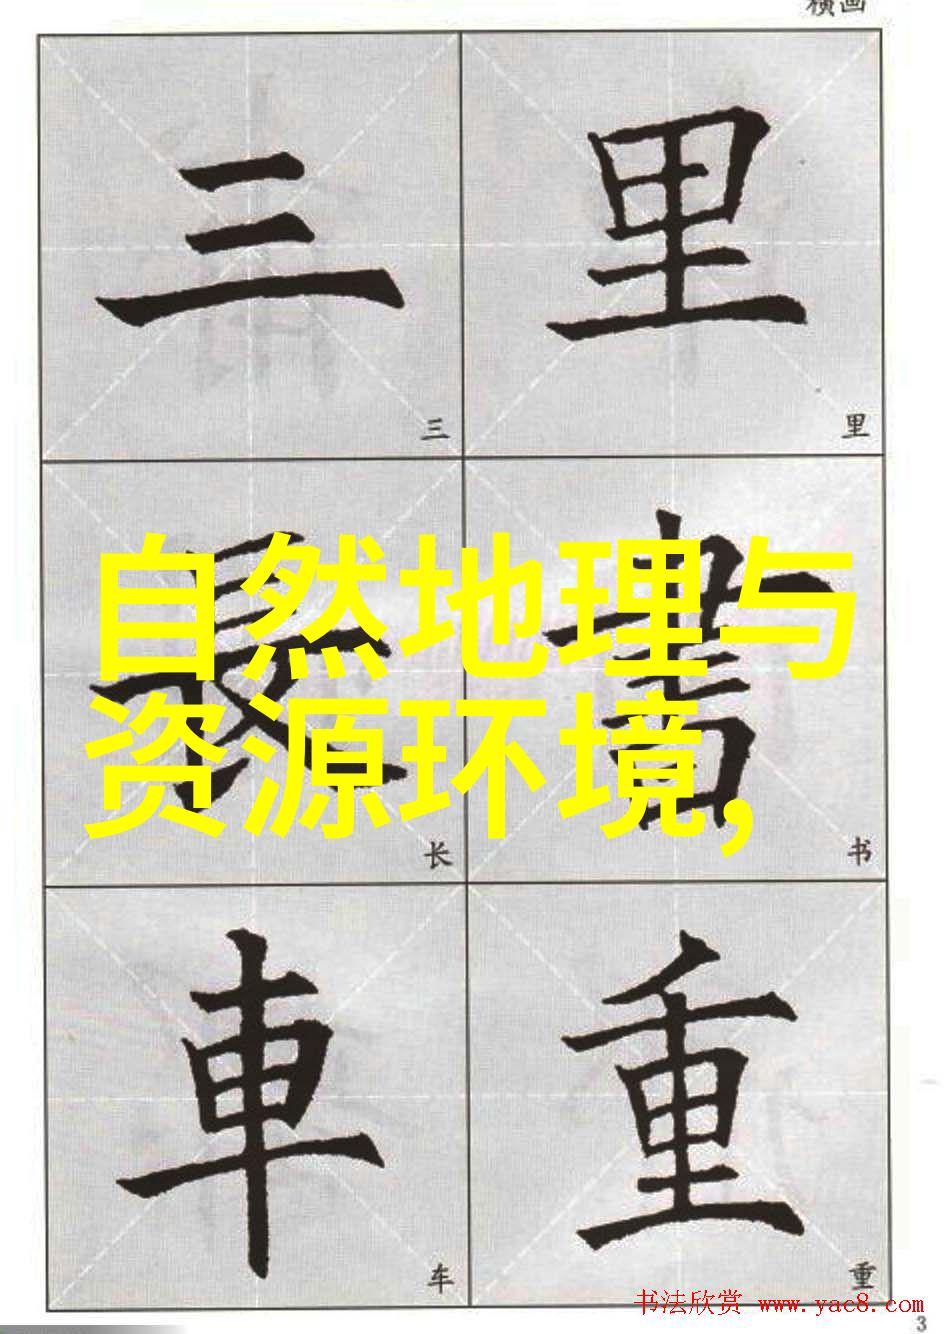 横画
三 里
三 里
長 書
自然地理与
资源环境,
长 书
車 重
车 重
书法欣赏 www.yac8.com
3